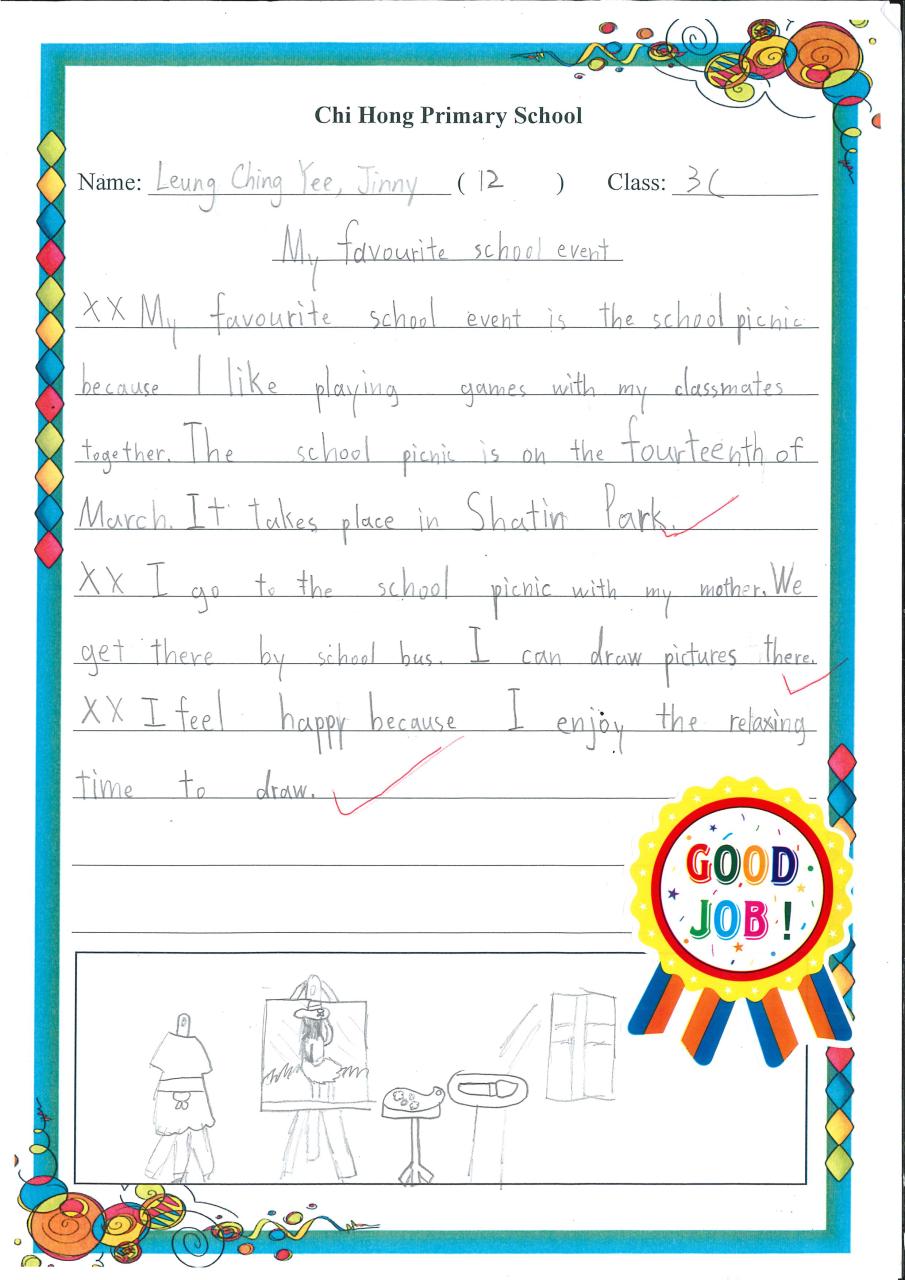 Chi Hong Primary School
Name: Leung Ching Yee, Jinny ( 12 ) Class: 3C
My favourite school event
XX My favourite school event is the school picnic
because I like playing games with my classmates
together. The school picnic is on the fourteenth of
March. It takes place in Shatin Park.
XX I go to the school picnic with my mother. We
get there by school bus. I can draw pictures there.
XX I feel happy because I enjoy the relaxing
time to draw.
GOOD
JOB !